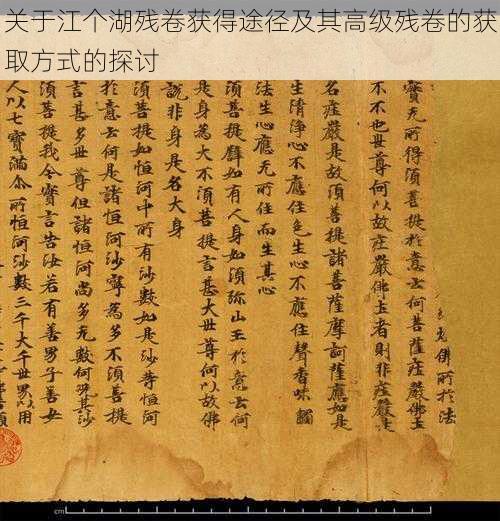 关于江个湖残卷获得途径及其高级残卷的获
取方式的探讨
佛所於法
實无所得須菩提於意云何菩薩莊嚴佛土
不不也世尊何以故莊嚴佛土者則非莊嚴是
名莊嚴是故須菩提諸菩薩摩訶薩應如是
生清淨心不應住色生心不應住聲香味觸
法生心應无所住而生其心
須菩提譬如有人身如須弥山王於意云何
是身為大不須菩提言甚大世尊何以故佛
說非身是名大身
須菩提如恒河中所有沙數如是沙等恒河
於意云何是諸恒河沙寧為多不須菩提
言甚多世尊但諸恒河尚多无數何况其沙
須菩提我今實言告汝若有善男子善女
人以七寶滿尒所恒河沙數三千大千世界以用
cm